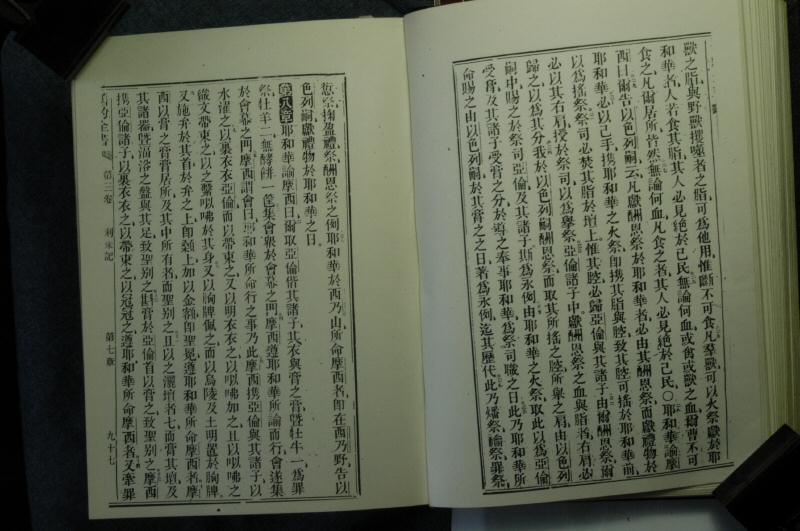 獸之脂與野獸攫噬者之脂可爲他用惟斷不可食凡羣獸可以火祭獻於耶
和華者人若食其脂其人必見絕於己民無論何血或禽或獸之血爾曹不可
食之凡爾居所皆然無論何血凡食之者其人必見絕於己民○耶和華諭摩
西曰爾告以色列嗣云凡獻酬恩祭於耶和華者必由其酬恩祭而獻禮物於
耶和華必以己手攜耶和華之火祭卽攜其脂與膣致其膣可搖於耶和華前
以爲搖祭祭司必焚其脂於壇上惟其膣必歸亞倫與其諸子由爾酬恩祭爾
必以其右肩授於祭司以爲舉祭亞倫諸子中獻酬恩祭之血與脂者右肩必
歸之以爲其分我於以色列嗣酬恩祭而取其所搖之膣所舉之肩由以色列
嗣中賜之於祭司亞倫及其諸子斯爲永例由耶和華之火祭取此以爲亞倫
受膏及其諸子受膏之分於導之奉事耶和華爲祭司職之日此乃耶和華所
命賜之由以色列嗣於其膏之之日著爲永例迄其歷代此乃燔祭餽祭罪祭
愆祭掬盈禮祭酬恩祭之例耶和華於西乃山所命摩西者卽在西乃野告以
色列嗣獻禮物於耶和華之日
第八章耶和華諭摩西曰爾取亞倫偕其諸子其衣與膏之膏曁牡牛一爲罪
祭牡羊二無酵餅一筐集會衆於會幕之門摩西遵耶和華所諭而行會遂集
於會幕之門摩西謂會曰耶和華所命行之事乃此摩西攜亞倫與其諸子以
水濯之以裏衣衣亞倫而以帶束之又以明衣衣之以以咈加之且以以咈之
織文帶束之以之繫以咈於其身又以胸牌佩之而以烏陵及土明置於胸牌
又施弁於其首於弁之上卽顙上加以金額卽聖冕遵耶和華所命摩西者摩
西以膏之膏膏居所及其中所有者而聖别之且以之灑壇者七而膏其壇及
其諸器曁前洛之盤與其足致聖别之斟膏於亞倫首以膏之致聖别之摩西
攜亞倫諸子以裏衣衣之以帶束之以冠冠之遵耶和華所命摩西者又牽罪
舊約全書 第三卷 利未記 第七章 九十七